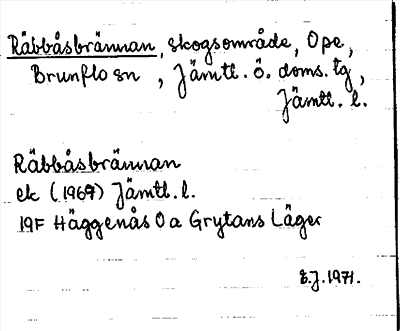 Räbbåsbrännan, skogsområde, Ope,
Brunflo sn, Jämtl. ö. doms. tg,
Jämtl. l.
Räbbåsbrännan
ek (1969) Jämtl. l.
19F Häggenås 0 a Grytans Läger
E.J. 1971.